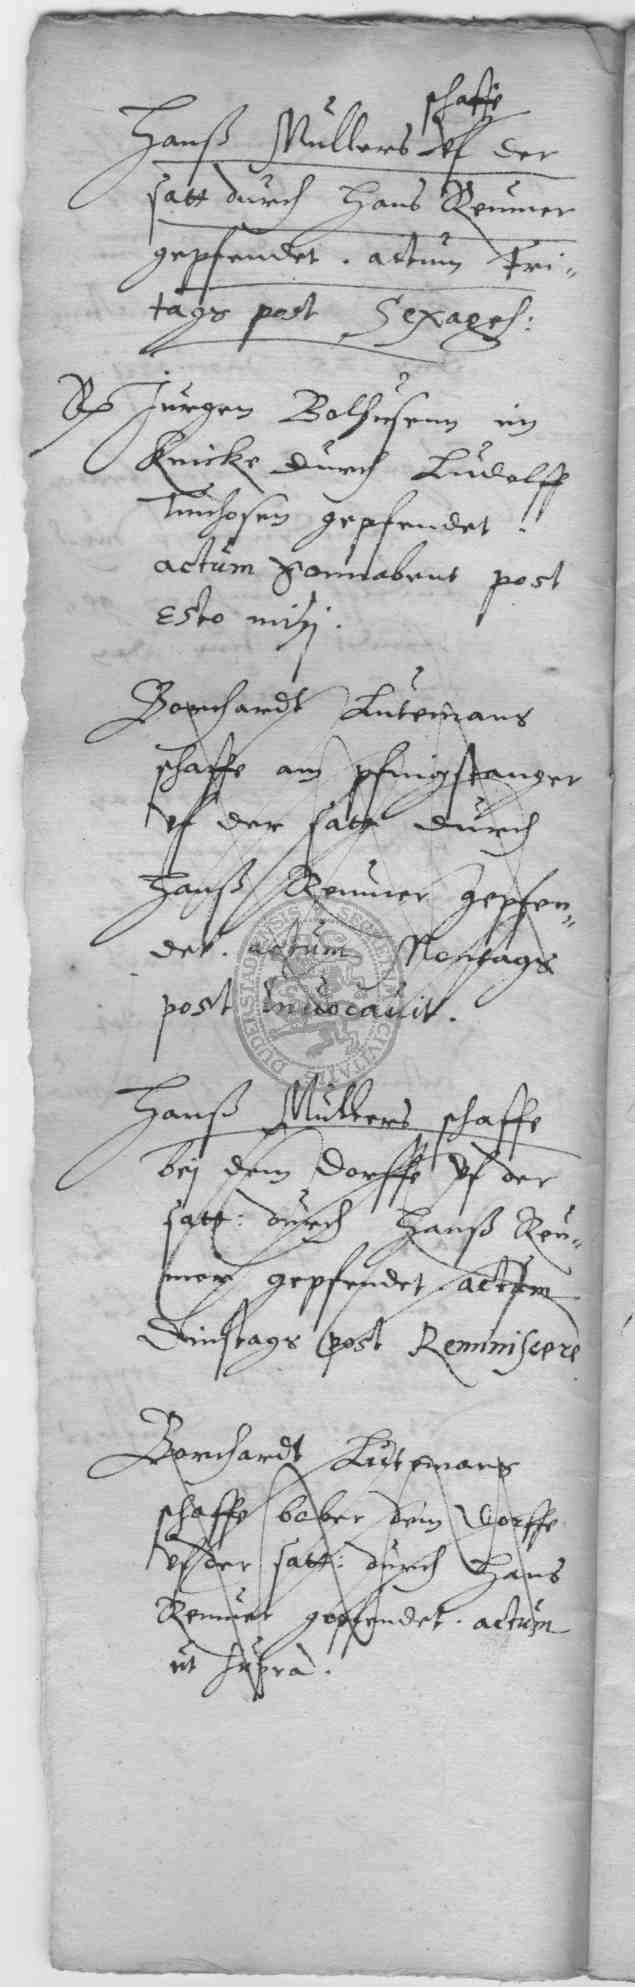 schaffe
Hanß Mullers vf der
satt durch Hans Reumer
gepfendet. actum Fri-
tags post Sexages:
Rp Jurgen Bolhusenn im
Knicke durch Ludolff
gepfendet.
actum Sonnabent post
Esto mihi.
Borchardt Lutemans
schaffe am pfingstanger
vf der satt durch
Hanß Reumer gepfen-
det. actum Montags
post Inuocauit.
Hanß Mullers schaffe
bej dem dorffe vf der
satt: durch Hanß Reu-
mer gepfendet. actum
Dinstags post Reminiscere
Borchardt Lutemans
schaffe bober dem dorffe
vf der satt: durch Hans
Reumer gepfendet. actum
ut supra.